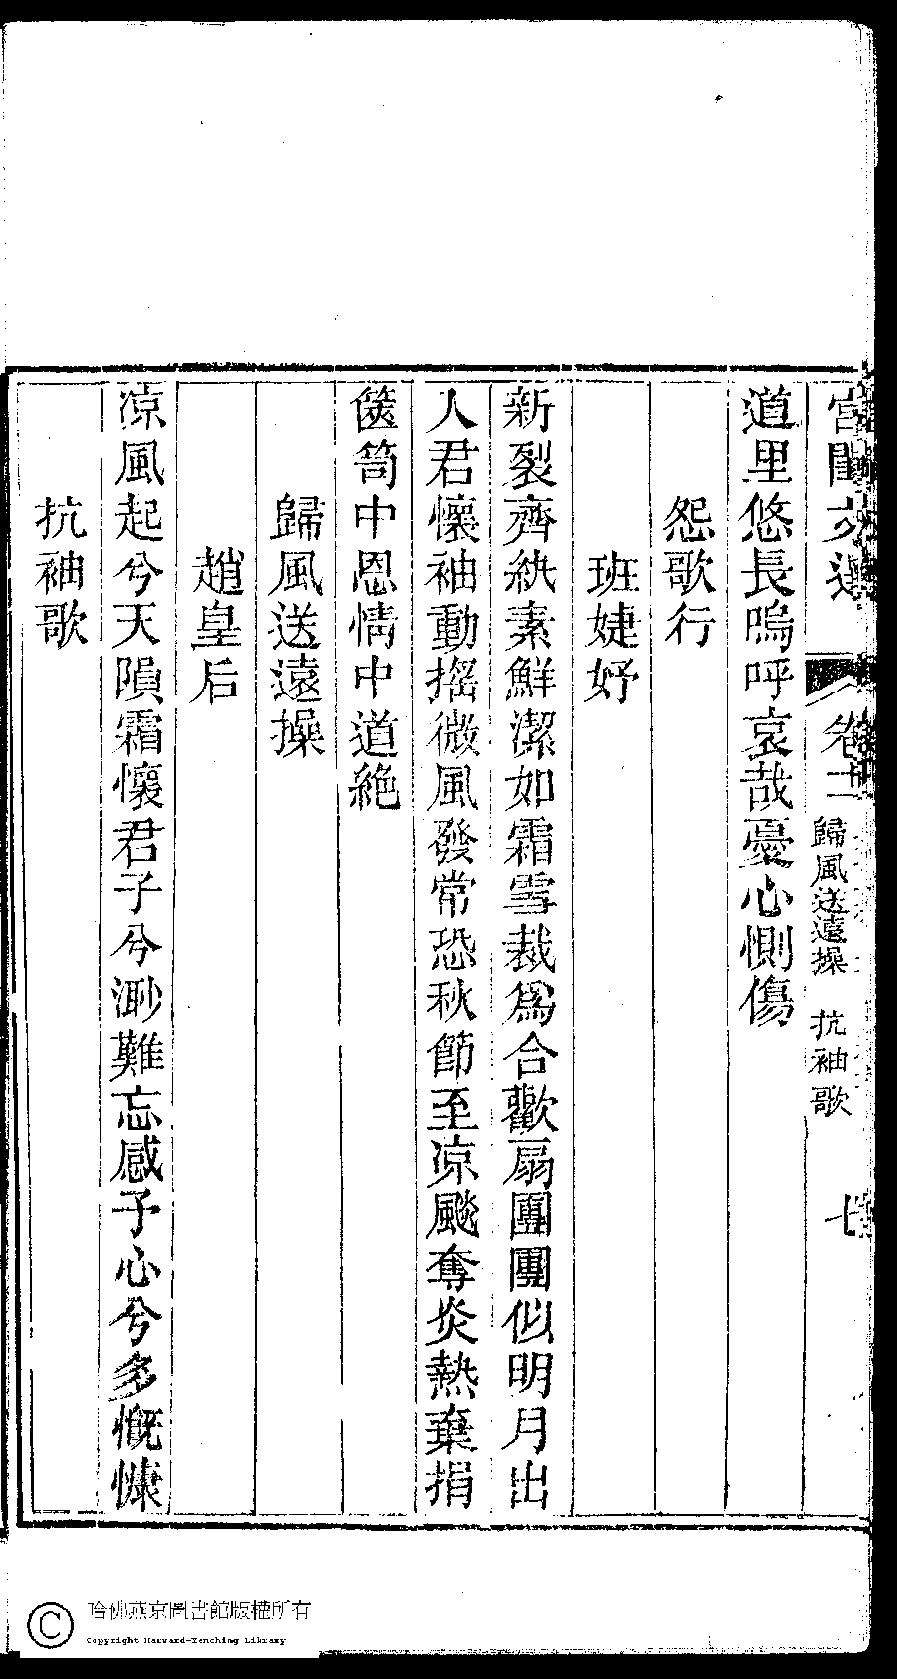 宮閨文選 卷十二 歸風送遠操 抗袖歌 七
道里悠長嗚呼哀哉憂心惻傷
怨歌行
班婕妤
新裂齊紈素鮮潔如霜雪裁爲合歡扇團團似明月出
人君懷袖動搖微風發常恐秋節至凉飈奪炎熱棄捐
篋笥中恩情中道絶
歸風送遠操
趙皇后
凉風起兮天隕霜懷君子兮渺難忘感予心兮多慨慷
抗袖歌
哈佛燕京圖書館版權所有
Copyright Harvard-Yenching Library